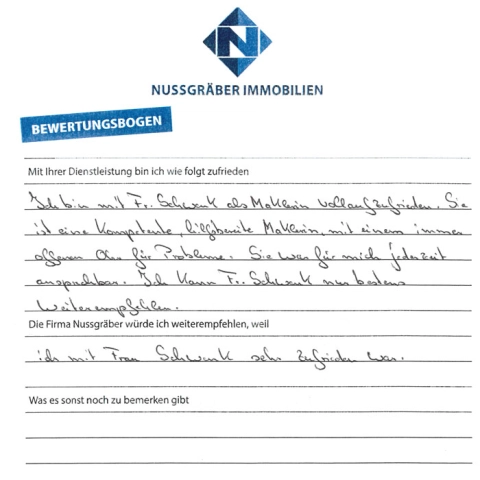 N
NUSSGRÄBER IMMOBILIEN
BEWERTUNGSBOGEN
Mit Ihrer Dienstleistung bin ich wie folgt zufrieden
Ich bin mit Fr. Schwenk als Maklerin vollauf zufrieden. Sie
ist eine kompetente, hilfsbereite Maklerin, mit einem immer
offenen Ohr für Probleme. Sie war für mich jederzeit
ansprechbar. Ich kann Fr. Schwenk nur bestens
weiterempfehlen.
Die Firma Nussgräber würde ich weiterempfehlen, weil
ich mit Frau Schwenk sehr zufrieden war.
Was es sonst noch zu bemerken gibt